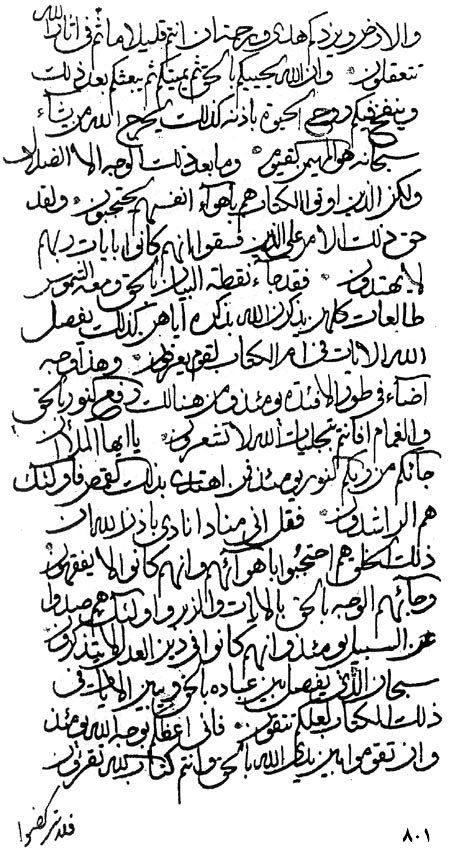 والارض ويزدكم هدى ورحمة ان انتم قليلا ما انتم في اثار الله
تتعقلون وان الله يحييكم بالحق ثم يميتكم ثم يبعثكم بعد ذلك
وينفخ فيكم روح الحيوة باذنه كذلك يخرج الله من يشاء
سبحانه هو المهيمن القيوم وما بعد ذلك الوجه الا الضلال
ولكن الذين اوتوا الكتاب هم باهواء انفسهم يحتجبون ولقد
حق ذلك الامر على الذين فسقوا انهم كانوا بايات ربهم
لا يهتدون فقد جاء نقطة البيان بالحق ومعه الشموس
طالعات كلهن يذكرن الله بذكره اياهن كذلك يفصل
الله الايات في ام الكتاب لقوم يعرفون وهذا وجه
اضاء في طور الافئدة يومئذ ومن هنالك رفع كنور بالحق
والغمام افانتم بتجليات الله لا تشعرون يا ايها الملأ ان
جائكم من ربكم كنور يومئذ فمن اهتدى بذلك القمص فاولئك
هم الراشدون فقل اني مناد انادي باذن الله ان
ذلك الخلق هم احتجبوا باهوائهم وانهم كانوا لا يفقهون
وجائهم الوجه بالحق بالايات والزبر واولئك هم صدوا
عن السبيل يومئذ وانهم كانوا في دين العدل لا يتذكرون
سبحان الذي يفصل بين عباده بالحق ويبين الايات في
ذلك الكتاب لعلكم تتقون فاني اعظكم بوجه الله يومئذ
وان تقوموا بين يدي الله بالحق وانتم كتاب الله تقرؤن
٨٠١